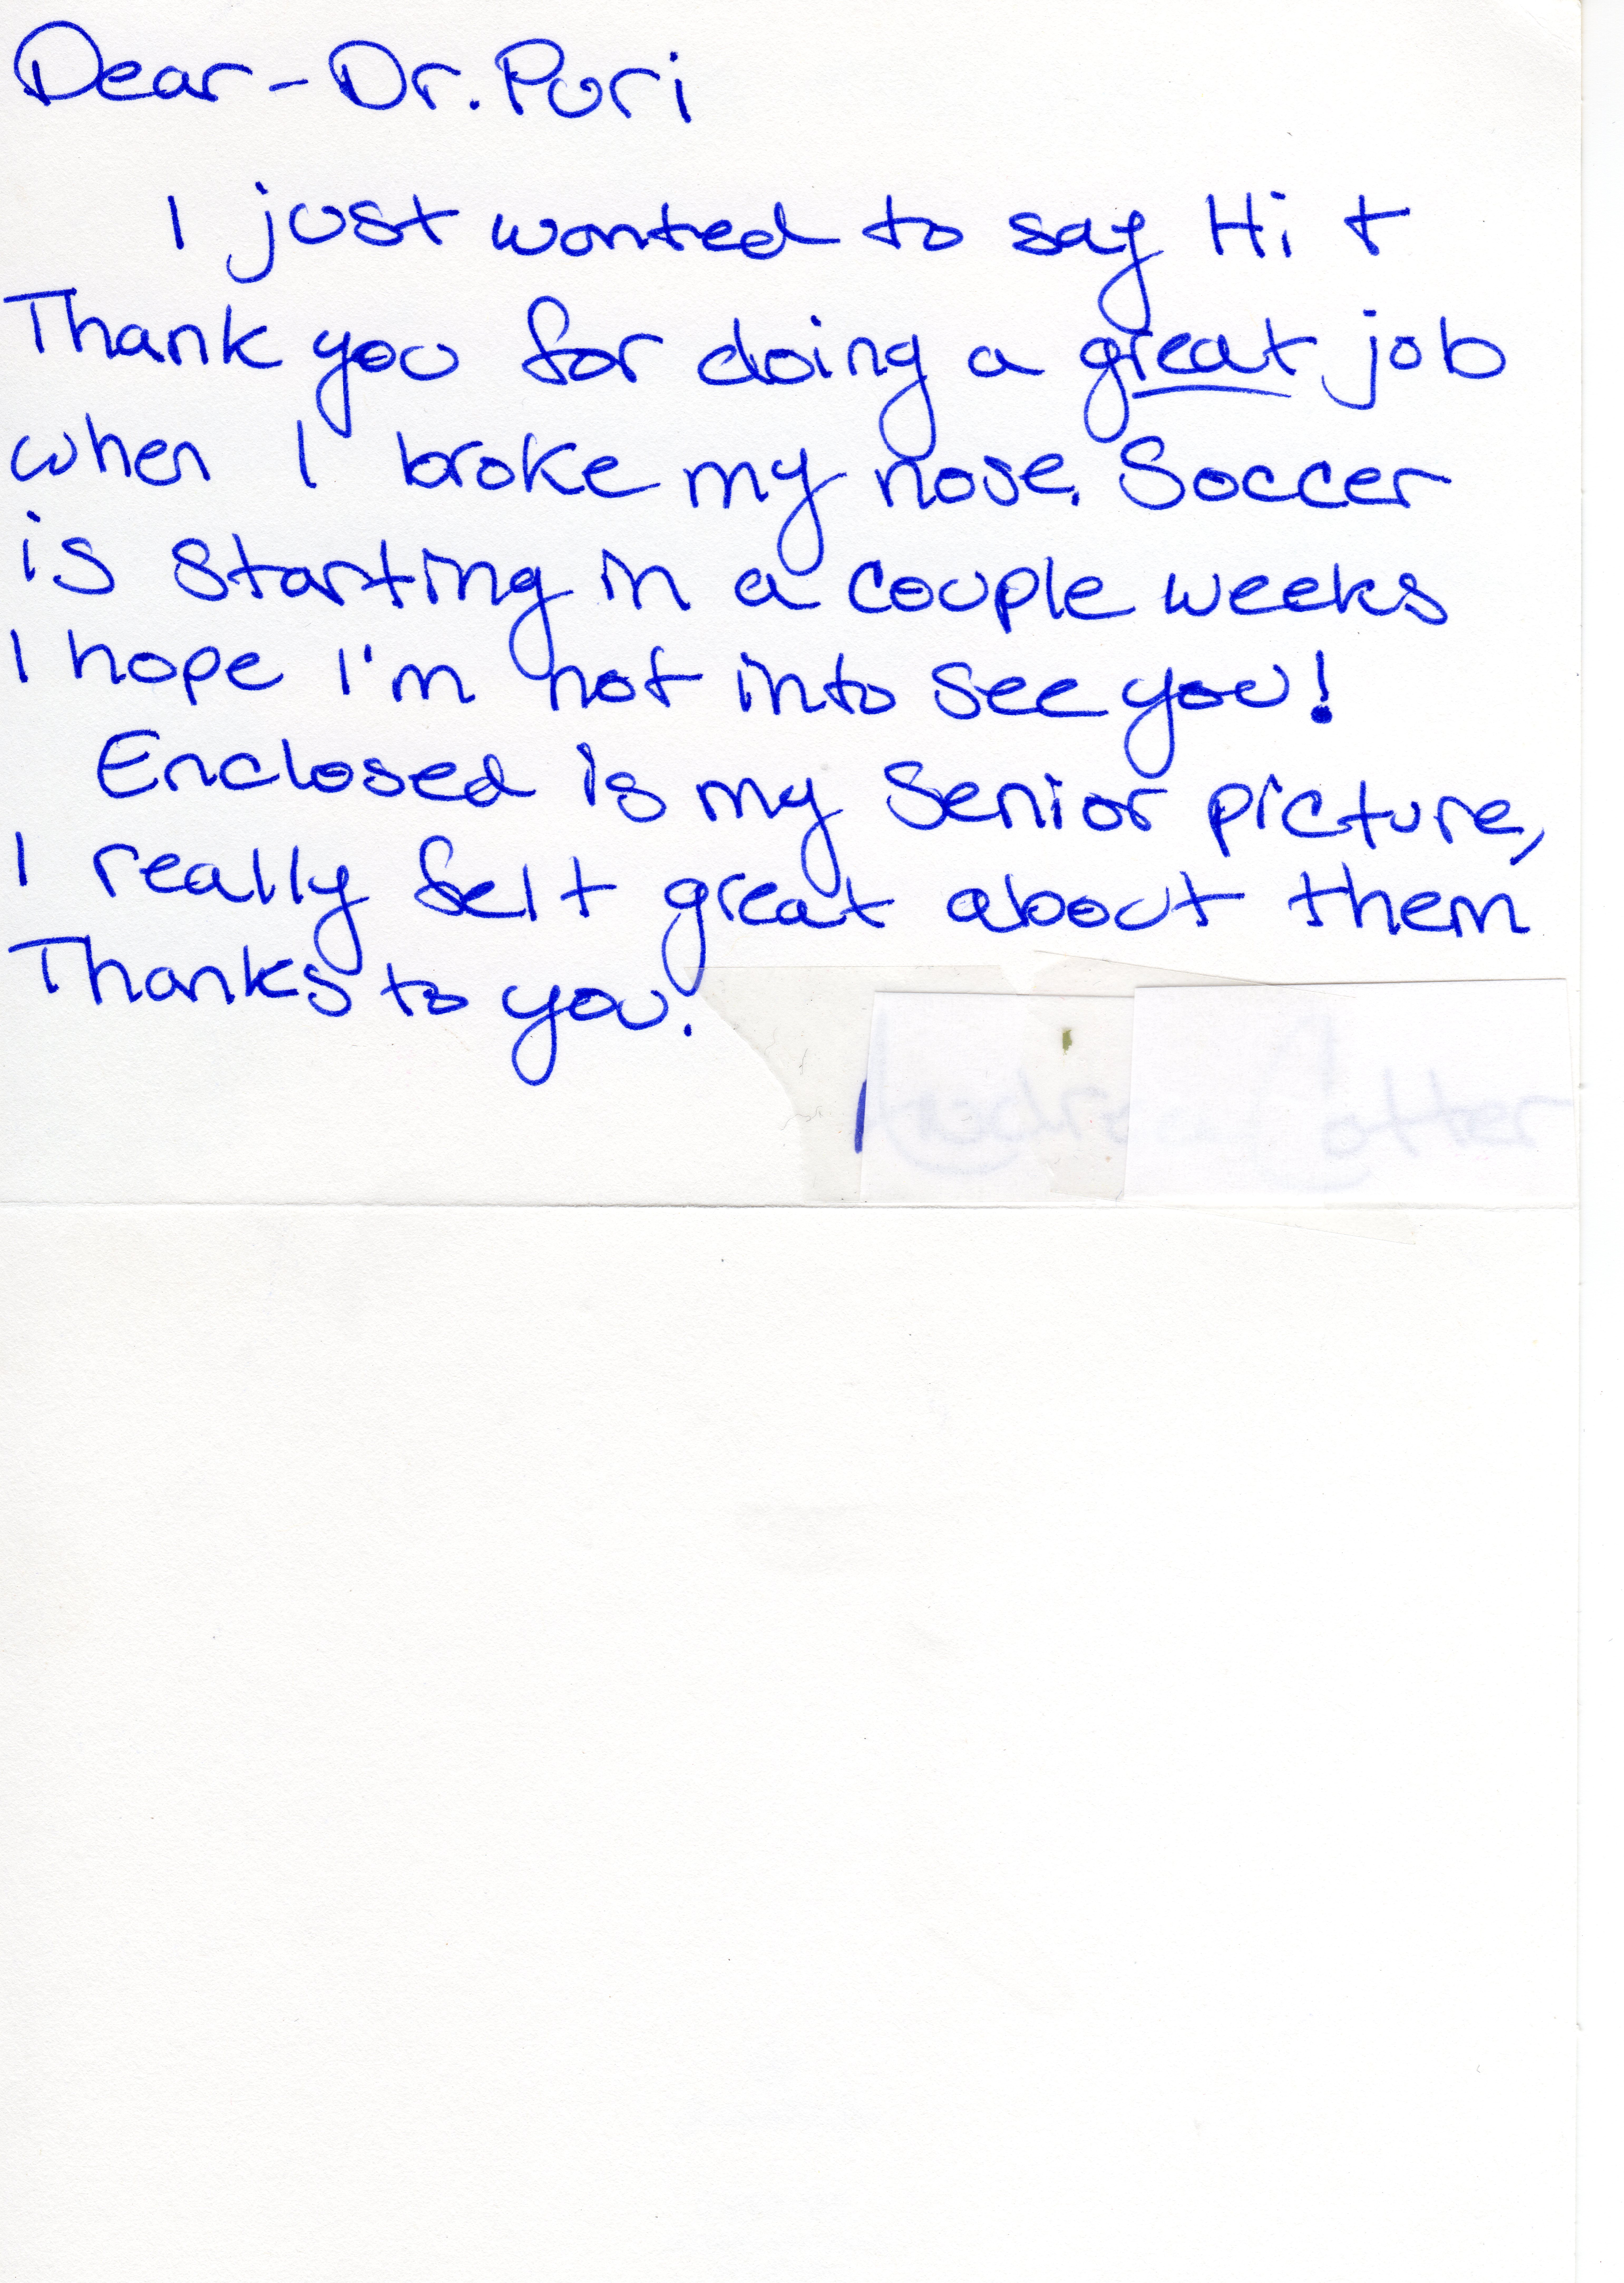 Dear - Dr. Puri
I just wanted to say Hi +
Thank you for doing a great job
when I broke my nose. Soccer
is starting in a couple weeks
I hope I'm not into see you!
Enclosed is my Senior picture,
I really felt great about them
Thanks to you.